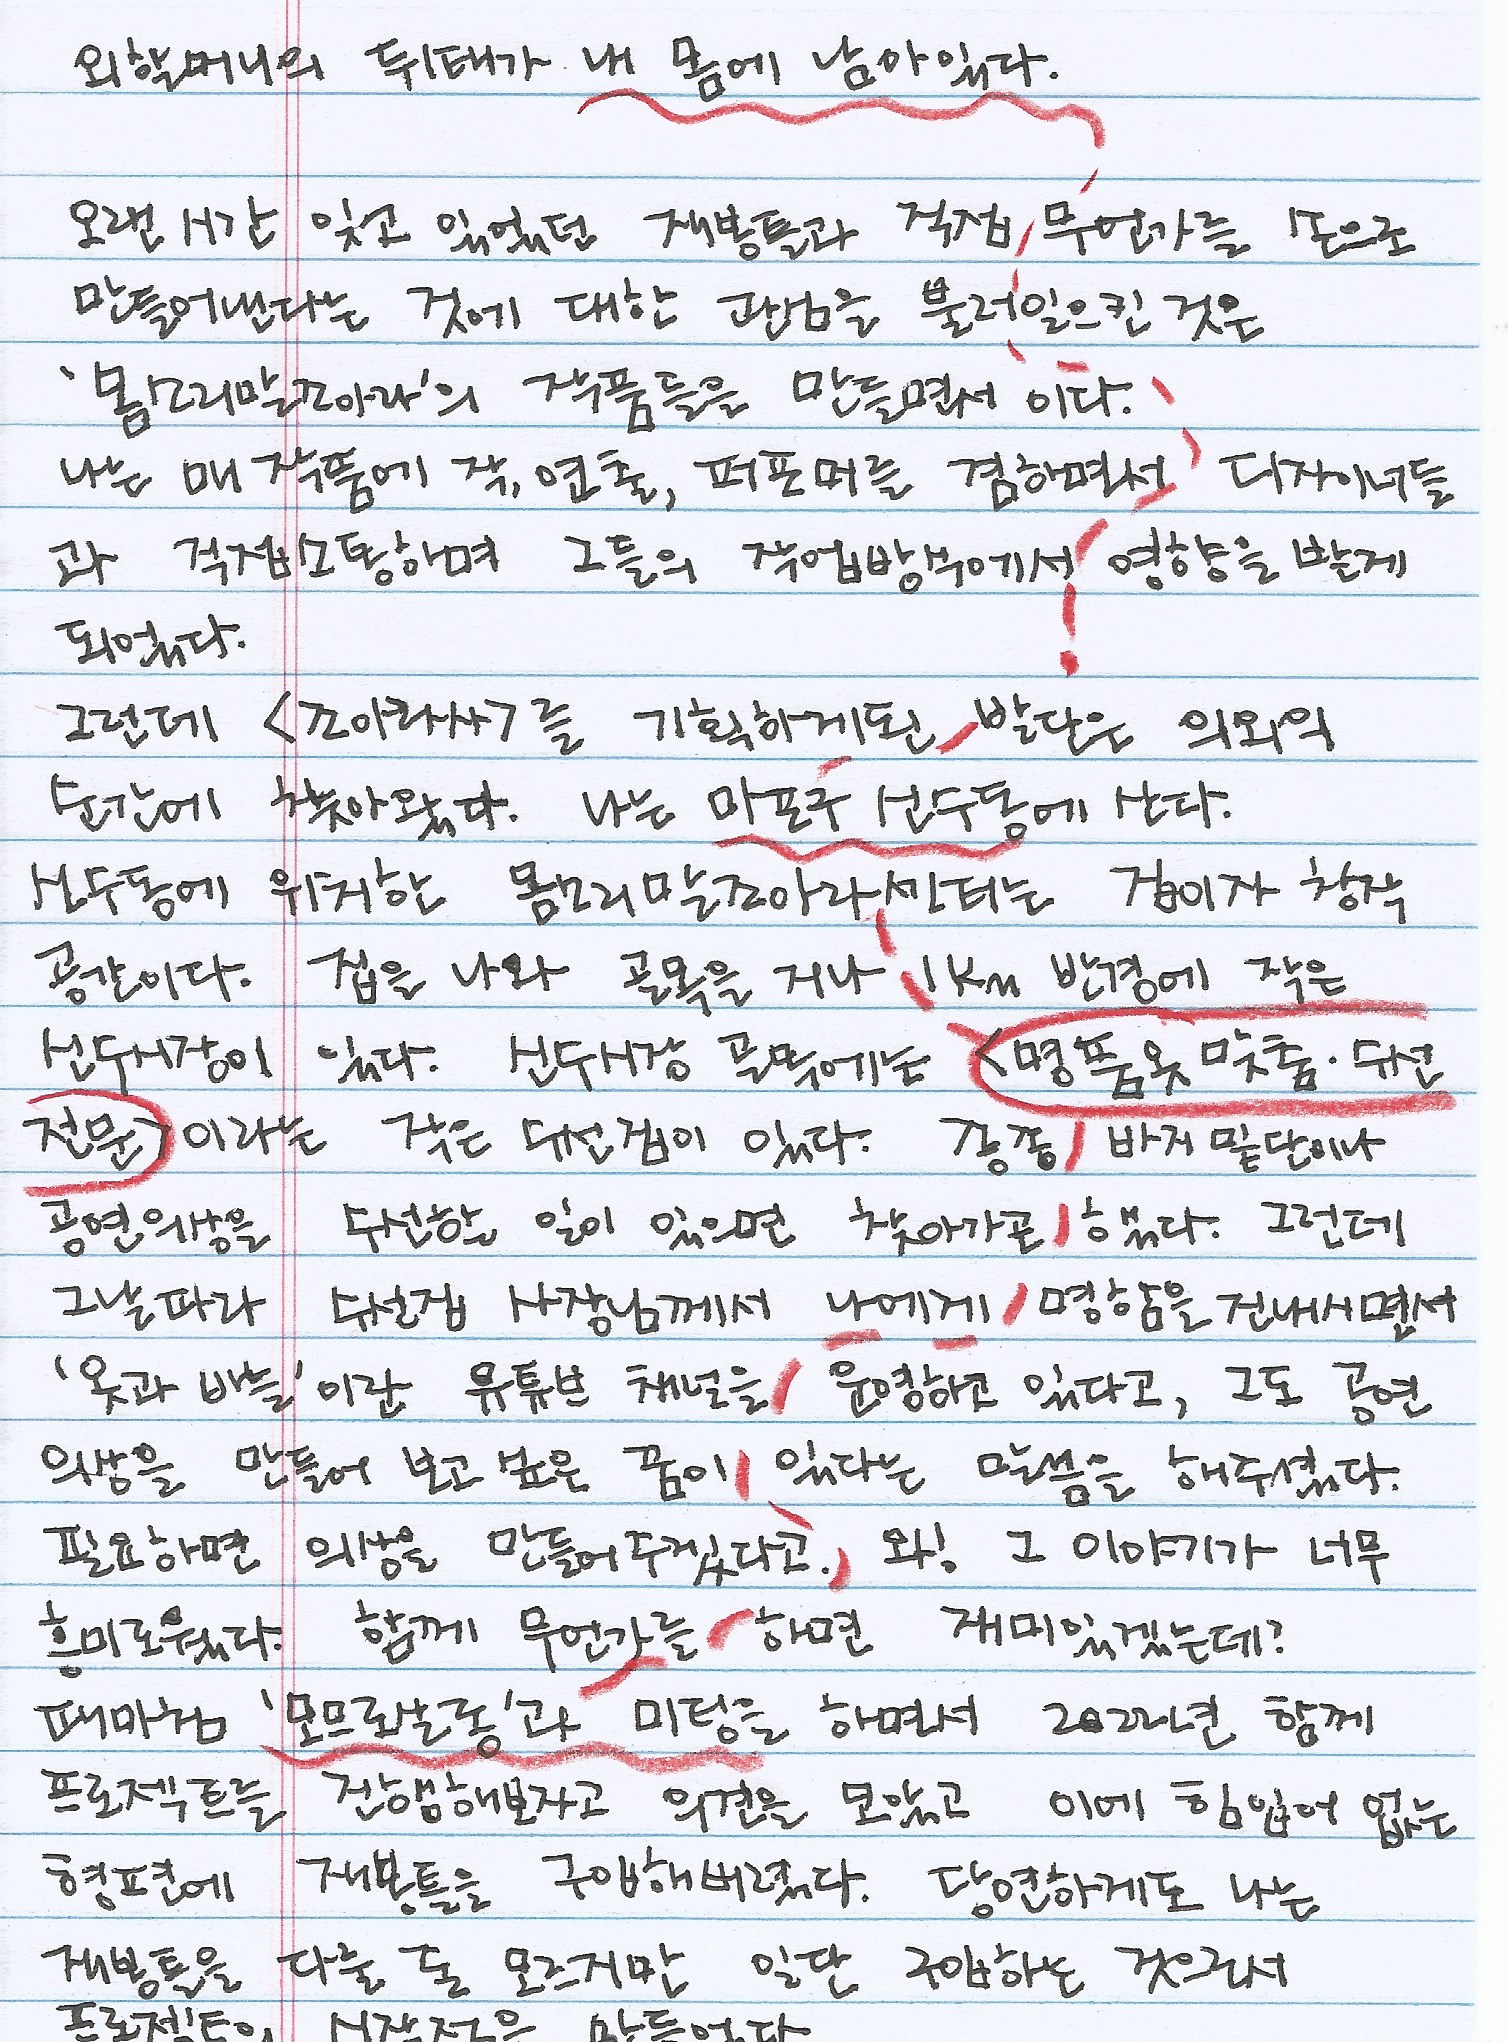 외할머니의 뒤태가 내 몸에 남아있다.
오랜 시간 잊고 있었던 재봉틀과 직접 무언가를 손으로
만들어낸다는 것에 대한 관심을 불러일으킨 것은
'몸소리말조아라'의 작품들을 만들면서 이다.
나는 매 작품에 작, 연출, 퍼포머를 겸하면서 디자이너들
과 직접소통하며 그들의 작업방식에서 영향을 받게
되었다.
그런데 <조아라사>를 기획하게된 발단은 의외의
순간에 찾아왔다. 나는 마포구 신수동에 산다.
신수동에 위치한 몸소리말조아라센터는 집이자 창작
공간이다. 집을 나와 골목을 지나 1km 반경에 작은
신수시장이 있다. 신수시장 골목에는 <명품옷 맞춤·수선
전문>이라는 작은 수선집이 있다. 종종 바지 밑단이나
공연의상을 수선할 일이 있으면 찾아가곤 했다. 그런데
그날따라 수선집 사장님께서 나에게 명함을 건내시면서
'옷과 바늘'이란 유튜브 채널을 운영하고 있다고, 그도 공연
의상을 만들어 보고 싶은 꿈이 있다는 말씀을 해주셨다.
필요하면 의상을 만들어주겠다고. 와! 그 이야기가 너무
흥미로웠다. 함께 무언가를 하면 재미있겠는데?
때마침 '모므로살롱'과 미팅을 하면서 2022년 함께
프로젝트를 진행해보자고 의견을 모았고 이에 힘입어 없는
형편에 재봉틀을 구입해버렸다. 당연하게도 나는
재봉틀을 다룰 줄 모르지만 일단 구입하는 것으로서
프로젝트의 시작점을 만들었다